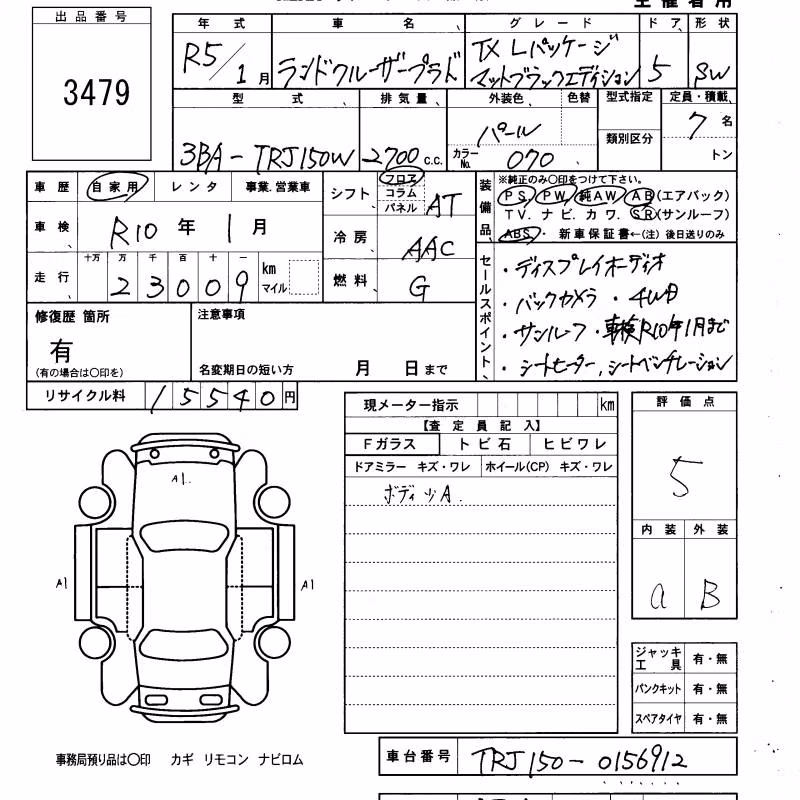 主催者用
出品番号
3479
年式 車名 グレード ドア 形状
R5/1月 ランドクルーザープラド TX Lパッケージ マットブラックエディション 5 SW
型式 排気量 外装色 色替 型式指定 定員・積載
3BA-TRJ150W 2700 c.c. パール 類別区分 7名
カラーNo. 070 トン
車歴 自家用 レンタ 事業.営業車
シフト フロア コラム パネル AT
装備品 ※純正のみ○印をつけて下さい。
PS PW 純AW AB(エアバック)
TV. ナビ. カワ. SR(サンルーフ)
ABS・ 新車保証書←(注) 後日送りのみ
車検 R10年 1月
冷房 AAC
走行 十万 万 千 百 十 一
23009 km マイル
燃料 G
セールスポイント
・ディスプレイオーディオ
・バックカメラ ・4WD
・サンルーフ ・車検R10年1月まで
・シートヒーター,シートベンチレーション
修復歴 箇所
有
(有の場合は○印を)
注意事項
名変期日の短い方 月 日まで
リサイクル料 15540円
現メーター指示 km
【査定員記入】
Fガラス トビ石 ヒビワレ
ドアミラー キズ・ワレ ホイール(CP) キズ・ワレ
ボディッA.
評価点
5
内装 外装
a B
A1.
A1
A1
ジャッキ工具 有・無
パンクキット 有・無
スペアタイヤ 有・無
事務局預り品は○印 カギ リモコン ナビロム
車台番号 TRJ150-0156912